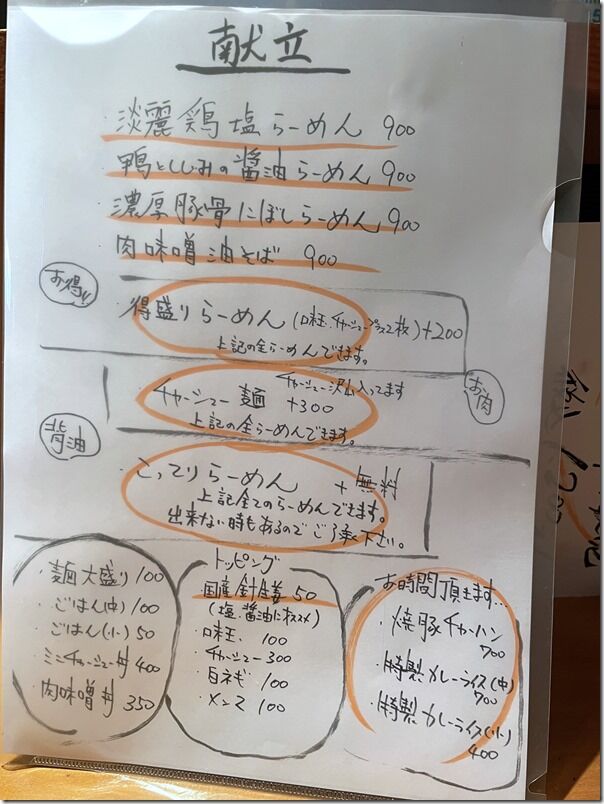 献立
・淡麗鶏塩らーめん 900
・鴨としじみの醤油らーめん 900
・濃厚豚骨にぼしらーめん 900
・肉味噌油そば 900
お得!!
・得盛りらーめん (味玉、チャーシュープラス2枚) +200
上記の全らーめんできます。
お肉
チャーシュー沢山入ってます
チャーシュー麺 +300
上記の全らーめんできます。
背油
・こってりらーめん + 無料
上記全てのらーめんできます。
出来ない時もあるのでご了承下さい。
・麺大盛り 100
・ごはん(中) 100
・ごはん(小) 50
・ミニチャーシュー丼 400
・肉味噌丼 350
トッピング
国産針生姜 50
(塩、醤油にオススメ)
・味玉、 100
・チャーシュー 300
・白ネギ 100
・メンマ 100
お時間頂きます…
・焼豚チャーハン
700
・特製カレーライス(中)
700
・特製カレーライス(小)
400